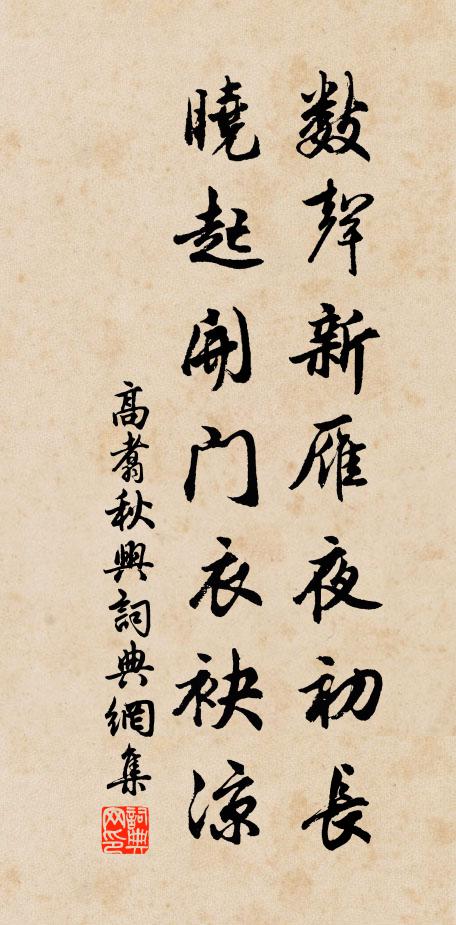 數聲新雁夜初長
曉起開門衣袂涼
高翥秋興詞典網集
詞典
网印